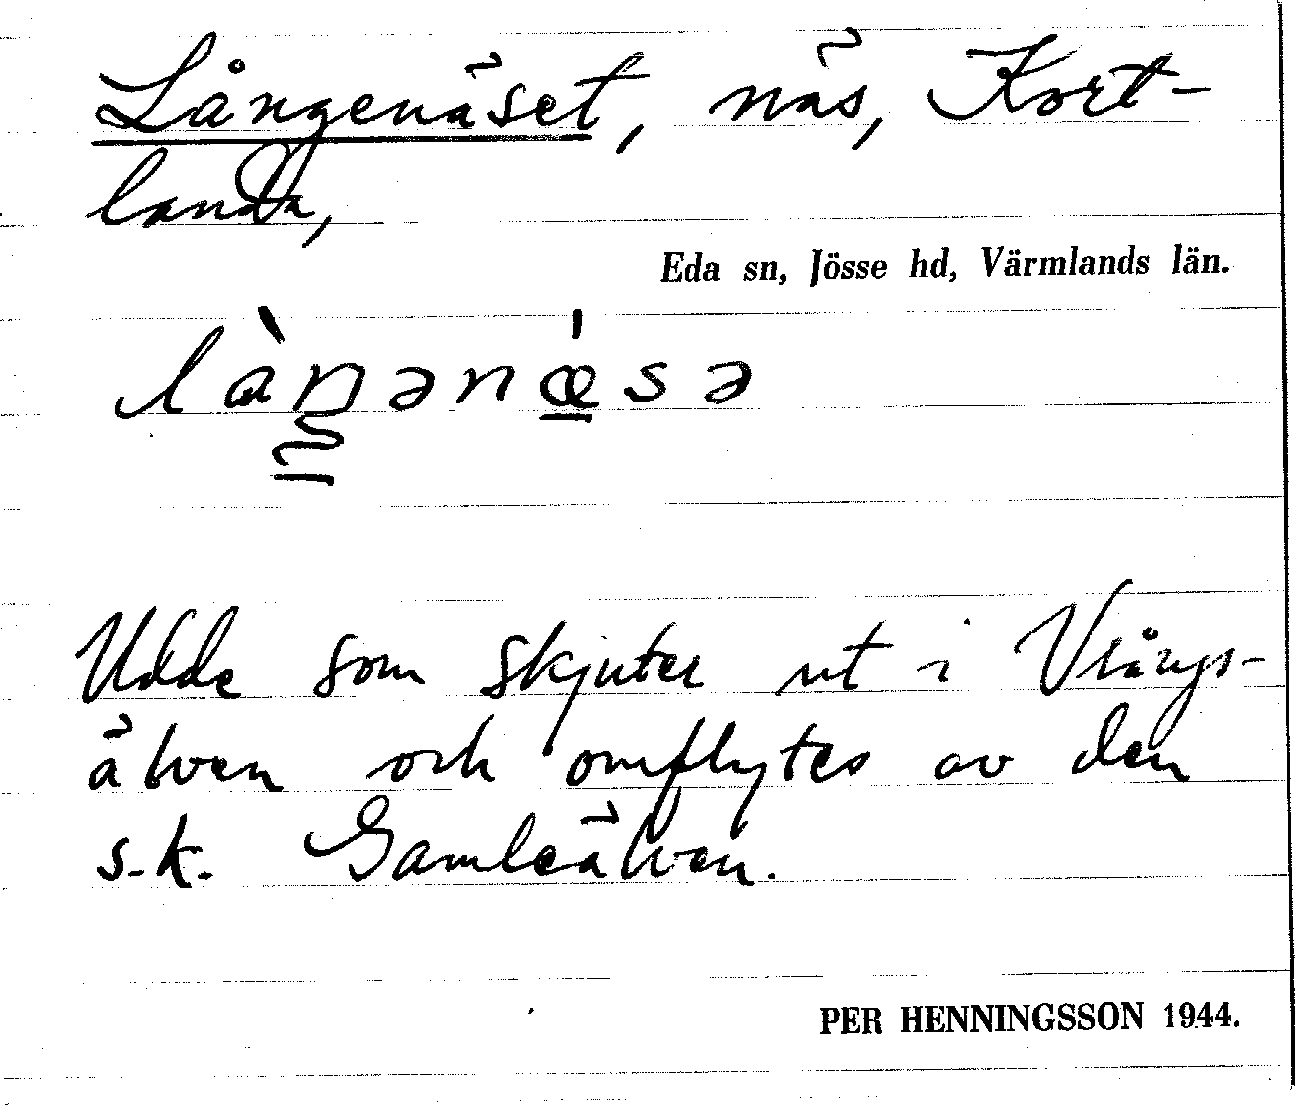 Långenäset, näs, Kort-
landa,
Eda sn, Jösse hd, Värmlands län.
làŋənǽsə
Udde som skjuter ut i Vrångs-
älven och omflytes av den
s.k. Gamleälven.
PER HENNINGSSON 1944.